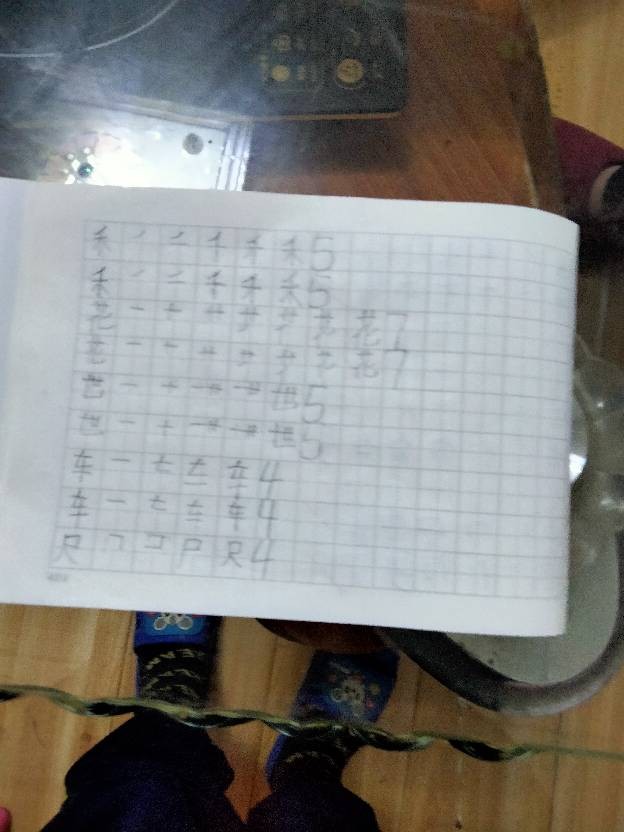 禾 ㇒ 二 千 禾 禾 5
禾 ㇒ 二 千 禾 禾 5
花 一 十 艹 花 花 7
花 一 十 艹 花 花 7
世 一 十 卄 廿 世 5
世 一 十 卄 廿 世 5
车 一 车 4
车 一 车 4
尺 ㇕ コ 尸 尺 4